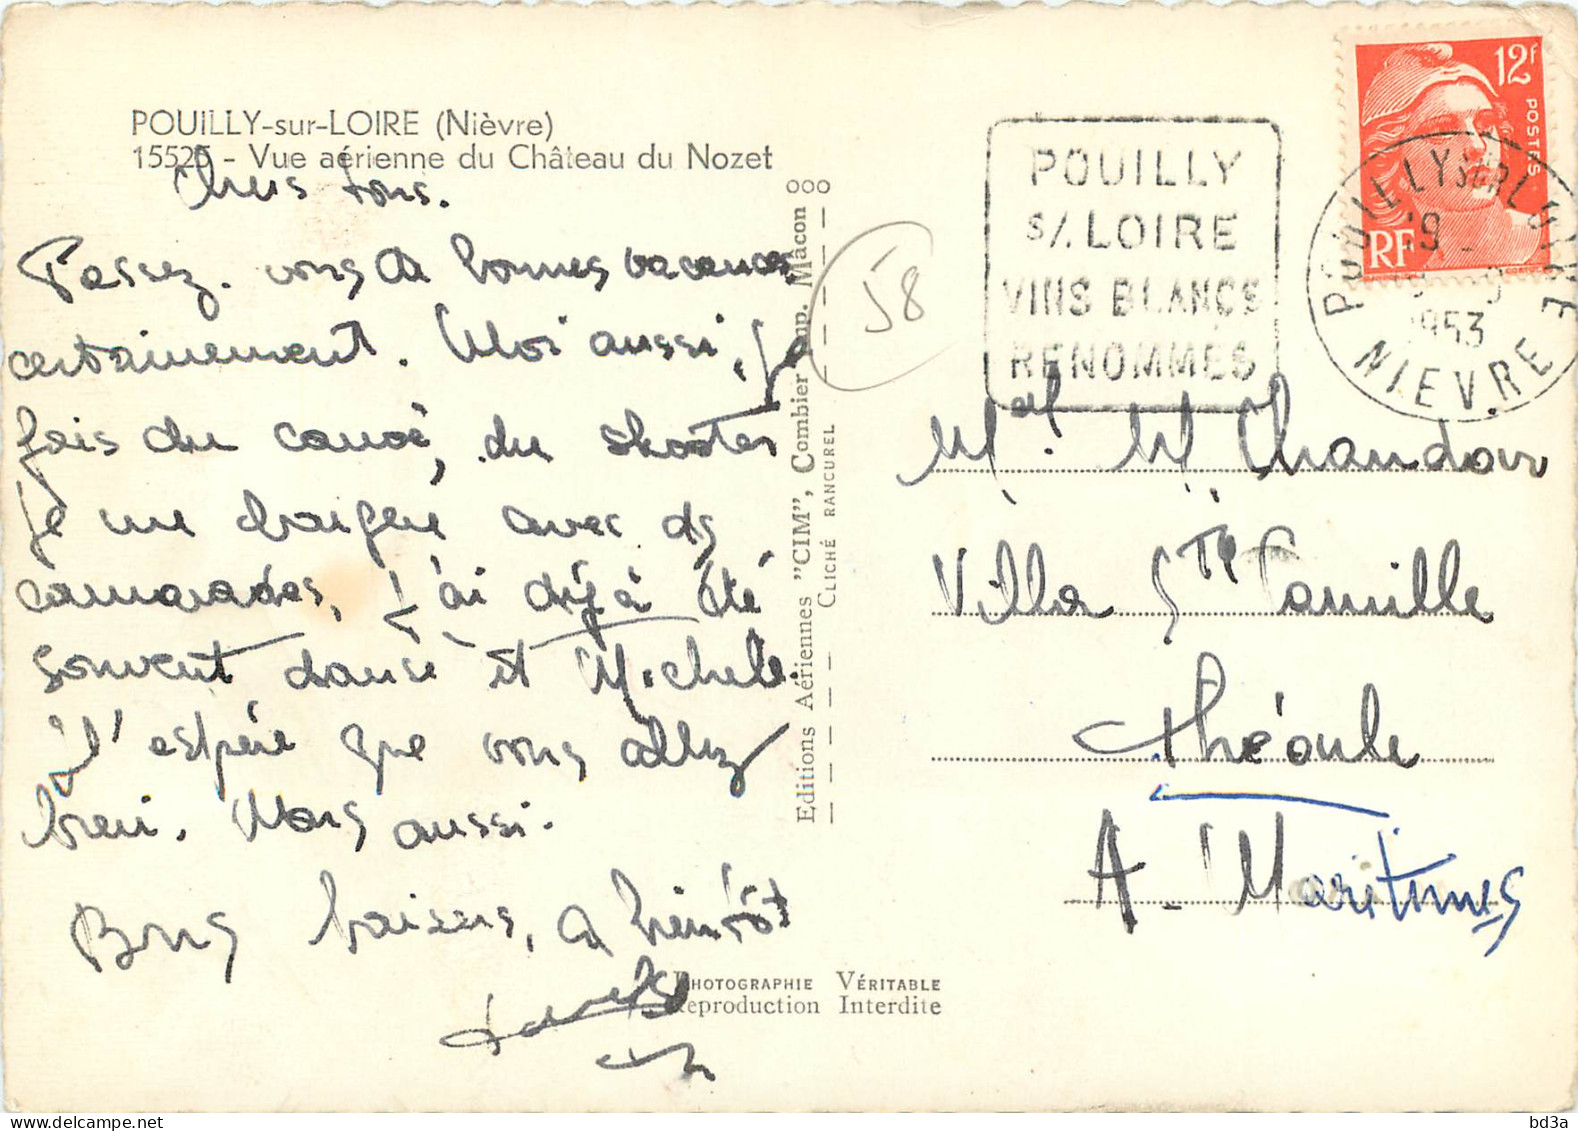 POUILLY-sur-LOIRE (Nièvre)
15525 - Vue aérienne du Château du Nozet
Chers tous.
Passez-vous de bonnes vacances
certainement. Moi aussi, je
fais du canoë, du skooter
je me baigne avec des
camarades, j'ai déjà été
souvent danser et Michele
J'espère que vous allez
bien. Nous aussi.
Bons baisers, a bientôt
Editions Aériennes "CIM", Combier Imp. Mâcon
CLICHÉ RANCUREL
PHOTOGRAPHIE VÉRITABLE
Reproduction Interdite
58
POUILLY
S/. LOIRE
VINS BLANCS
RENOMMES
12F
POSTES
RF
POUILLY SUR LOIRE
19
1953
NIEVRE
M. Chandon
Villa Ste Famille
Théoule
A-Maritimes
bd3a